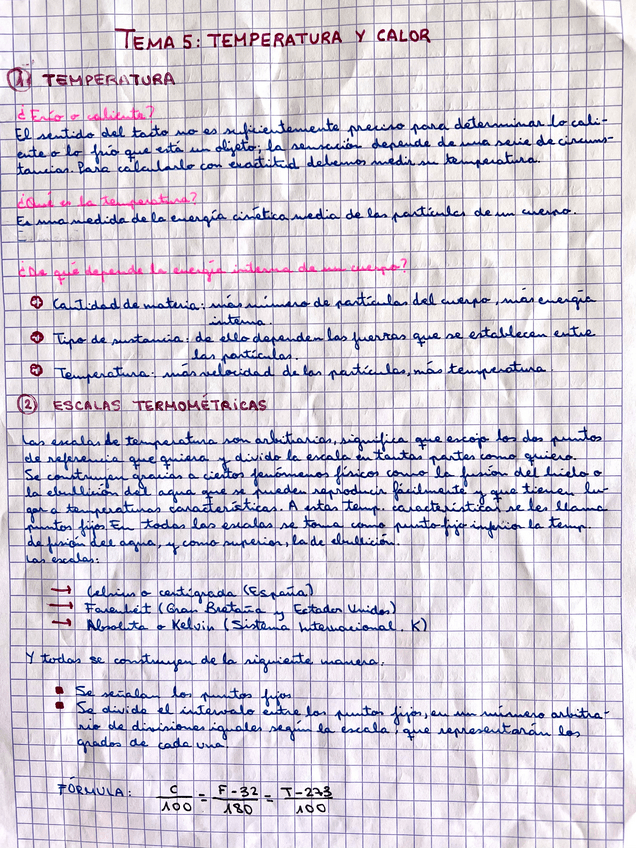 TEMA 5: TEMPERATURA Y CALOR
1 TEMPERATURA
¿Frío o caliente?
El sentido del tacto no es suficientemente preciso para determinar lo cali-
ente o lo frío que está un objeto; la sensación depende de una serie de circuns-
tancias. Para calcularlo con exactitud debemos medir su temperatura.
¿Qué es la temperatura?
Es una medida de la energía cinética media de las partículas de un cuerpo.
¿De qué depende la energía interna de un cuerpo?
Cantidad de materia: más número de partículas del cuerpo, más energía
interna.
Tipo de sustancia: de ello dependen las fuerzas que se establecen entre
las partículas.
Temperatura: más velocidad de las partículas, más temperatura.
2 ESCALAS TERMOMÉTRICAS
Las escalas de temperatura son arbitrarias, significa que escojo los dos puntos
de referencia que quiera y divido la escala en tantas partes como quiero.
Se construyen gracias a ciertos fenómenos físicos como la fusión del hielo o
la ebullición del agua que se pueden reproducir fácilmente y que tienen lu-
gar a temperaturas características. A estas temp. características se les llama
puntos fijos. En todas las escalas se toma como punto fijo inferior la temp.
de fusión del agua, y como superior, la de ebullición.
Las escalas:
→ Celsius o centígrada (España)
→ Farenheit (Gran Bretaña y Estados Unidos)
→ Absoluta o Kelvin (Sistema Internacional. K)
Y todas se construyen de la siguiente manera:
Se señalan los puntos fijos
Se divide el intervalo entre los puntos fijos, en un número arbitra-
rio de divisiones iguales según la escala, que representarán los
grados de cada una.
FÓRMULA: C/100 = F-32/180 = T-273/100